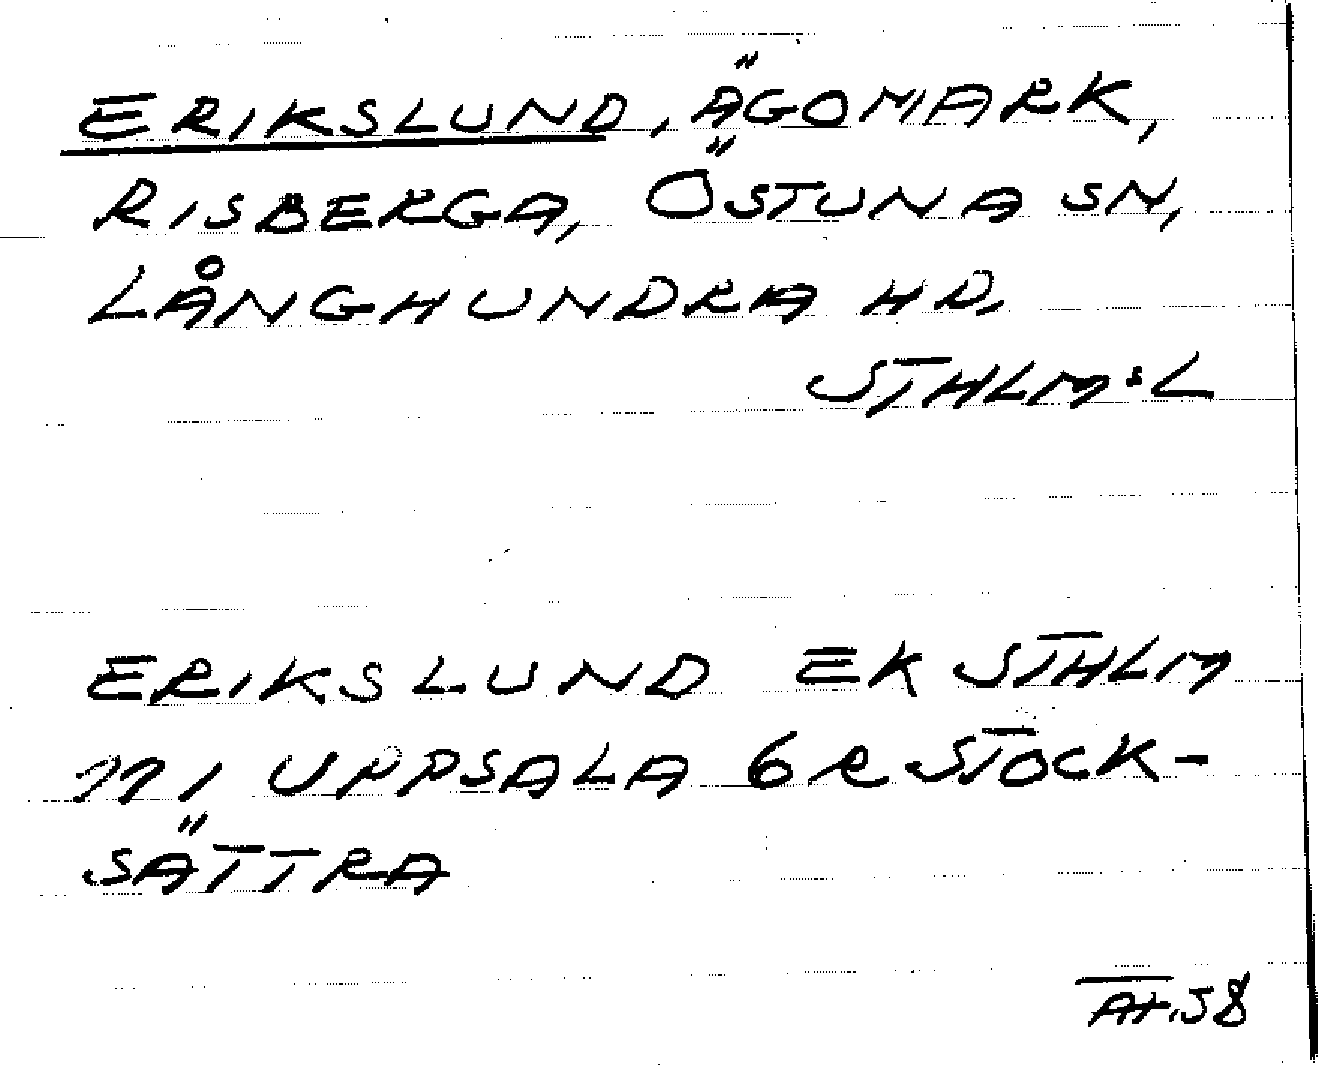 ERIKSLUND, ÄGOMARK,
RISBERGA, ÖSTUNA SN,
LÅNGHUNDRA HD,
STHLMS L
ERIKSLUND EK STHLM
111 UPPSALA 6 R STOCK-
SÄTTRA
AH.58